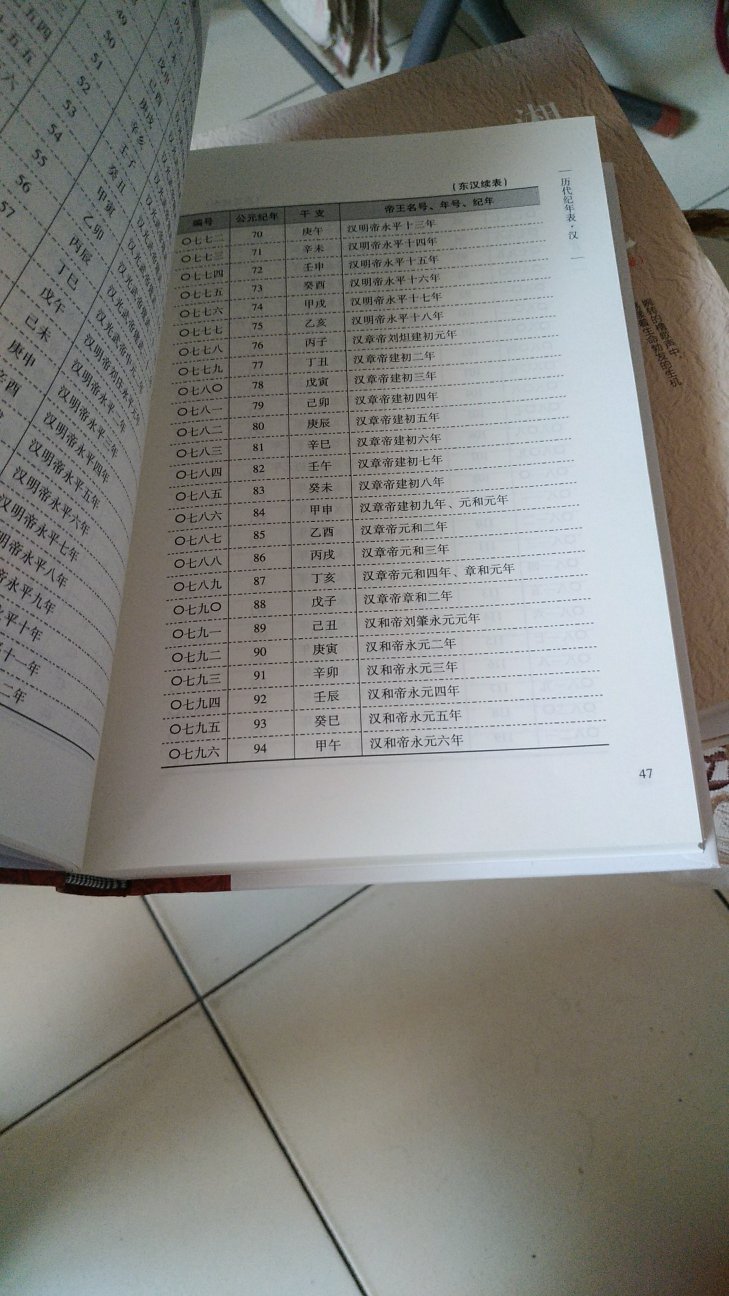 50
51
52
53
54
55
56
57
丁未
庚戌
辛亥
壬子
癸丑
甲寅
乙卯
丙辰
丁巳
戊午
己未
庚申
辛酉
汉明帝永平四年
汉明帝永平五年
汉明帝永平六年
汉明帝永平七年
明帝永平八年
帝永平九年
永平十年
十一年
二年
(东汉续表)
编号 公元纪年 干支 帝王名号、年号、纪年
〇七七二 70 庚午 汉明帝永平十三年
〇七七三 71 辛未 汉明帝永平十四年
〇七七四 72 壬申 汉明帝永平十五年
〇七七五 73 癸酉 汉明帝永平十六年
〇七七六 74 甲戌 汉明帝永平十七年
〇七七七 75 乙亥 汉明帝永平十八年
〇七七八 76 丙子 汉章帝刘炟建初元年
〇七七九 77 丁丑 汉章帝建初二年
〇七八〇 78 戊寅 汉章帝建初三年
〇七八一 79 己卯 汉章帝建初四年
〇七八二 80 庚辰 汉章帝建初五年
〇七八三 81 辛巳 汉章帝建初六年
〇七八四 82 壬午 汉章帝建初七年
〇七八五 83 癸未 汉章帝建初八年
〇七八六 84 甲申 汉章帝建初九年、元和元年
〇七八七 85 乙酉 汉章帝元和二年
〇七八八 86 丙戌 汉章帝元和三年
〇七八九 87 丁亥 汉章帝元和四年、章和元年
〇七九〇 88 戊子 汉章帝章和二年
〇七九一 89 己丑 汉和帝刘肇永元元年
〇七九二 90 庚寅 汉和帝永元二年
〇七九三 91 辛卯 汉和帝永元三年
〇七九四 92 壬辰 汉和帝永元四年
〇七九五 93 癸巳 汉和帝永元五年
〇七九六 94 甲午 汉和帝永元六年
历代纪年表·汉
47